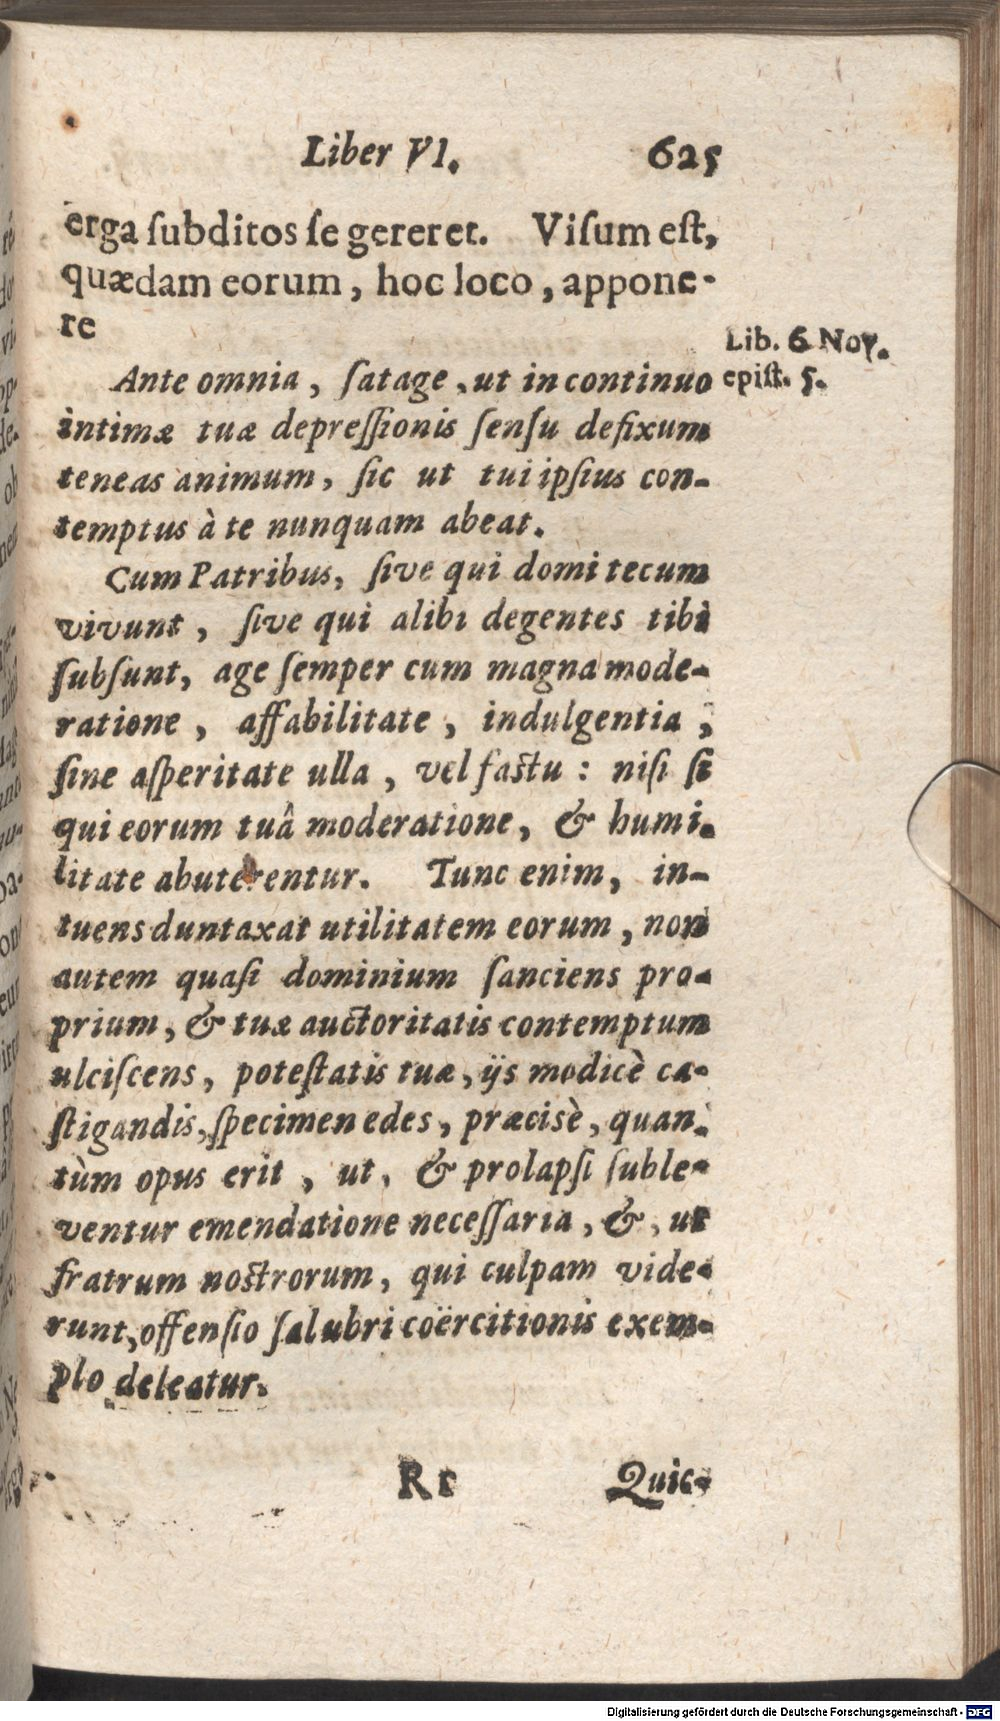 Liber VI. 625
erga ſubditos ſe gereret. Viſum eſt,
quædam eorum, hoc loco, appone-
re
Lib. 6 Nov.
epiſt. 5.
Ante omnia, ſatage, ut in continuo
intimæ tuæ depreſſionis ſenſu defixum
teneas animum, ſic ut tui ipſius con-
temptus à te nunquam abeat.
Cum Patribus, ſive qui domi tecum
vivunt, ſive qui alibi degentes tibi
ſubſunt, age ſemper cum magna mode-
ratione, affabilitate, indulgentia,
ſine aſperitate ulla, vel faſtu: niſi ſi
qui eorum tuâ moderatione, & humi-
litate abuterentur. Tunc enim, in-
tuens duntaxat utilitatem eorum, non
autem quaſi dominium ſanciens pro-
prium, & tuæ auctoritatis contemptum
ulciſcens, poteſtatis tuæ, ijs modicè ca-
ſtigandis, ſpecimen edes, præcisè, quan-
tùm opus erit, ut, & prolapſi ſuble-
ventur emendatione neceſſaria, &, ut
fratrum noſtrorum, qui culpam vide-
runt, offenſio ſalubri coërcitionis exem-
plo deleatur.
Rr Quic-
Digitalisierung gefördert durch die Deutsche Forschungsgemeinschaft - DFG